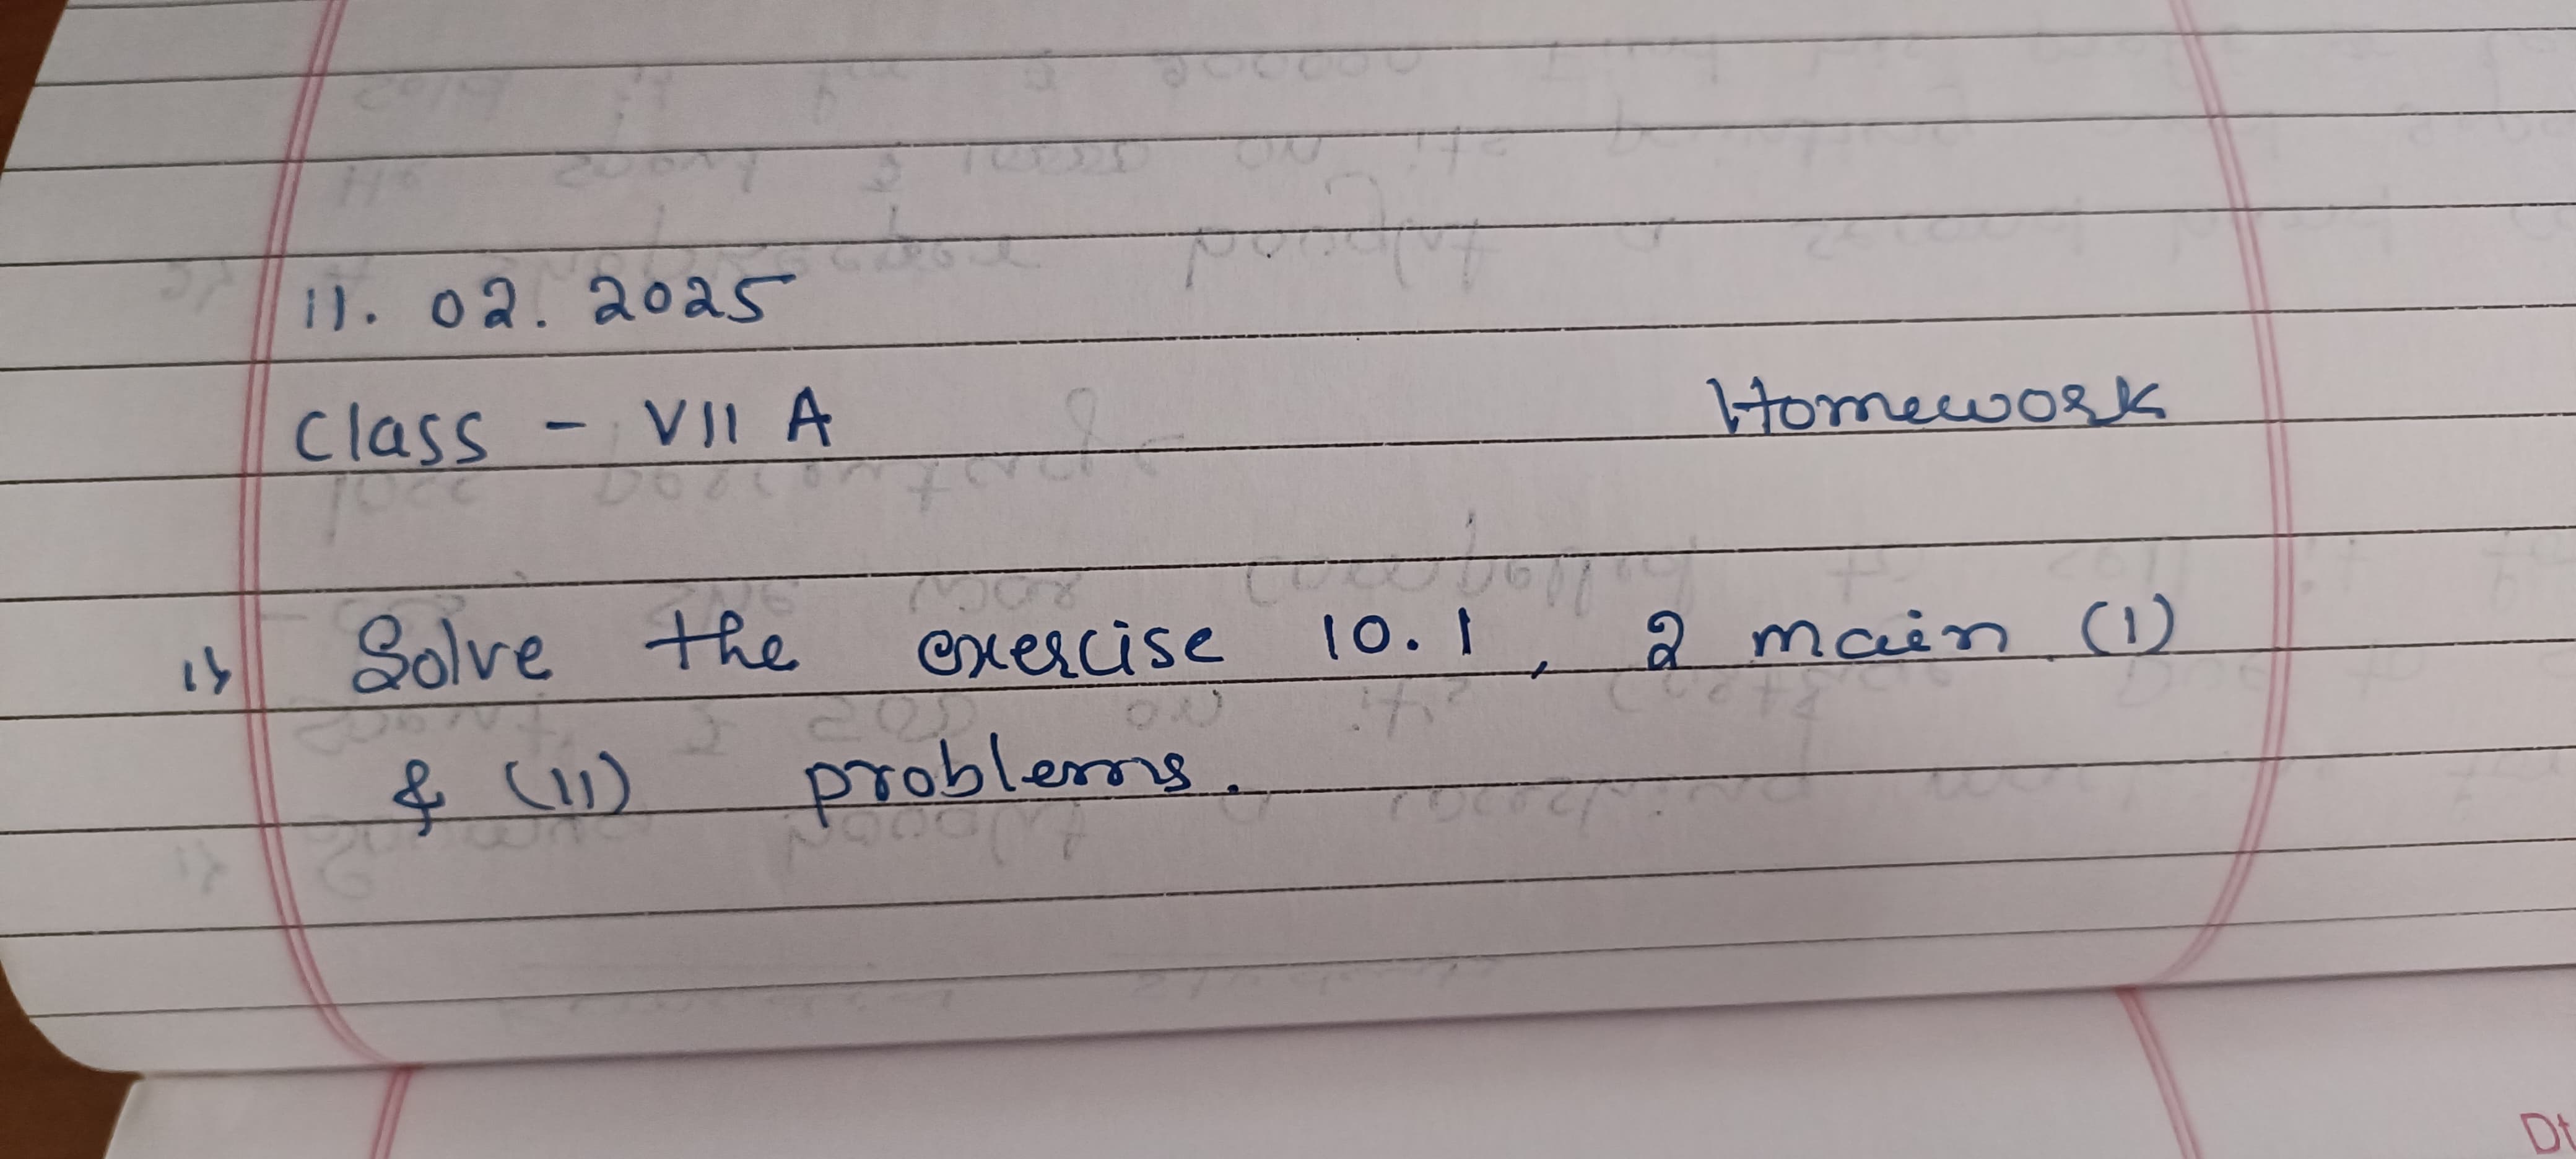 11. 02. 2025
Class - VII A Homework
1) Solve the exercise 10.1, 2 main (I)
& (II) problems.
Dt